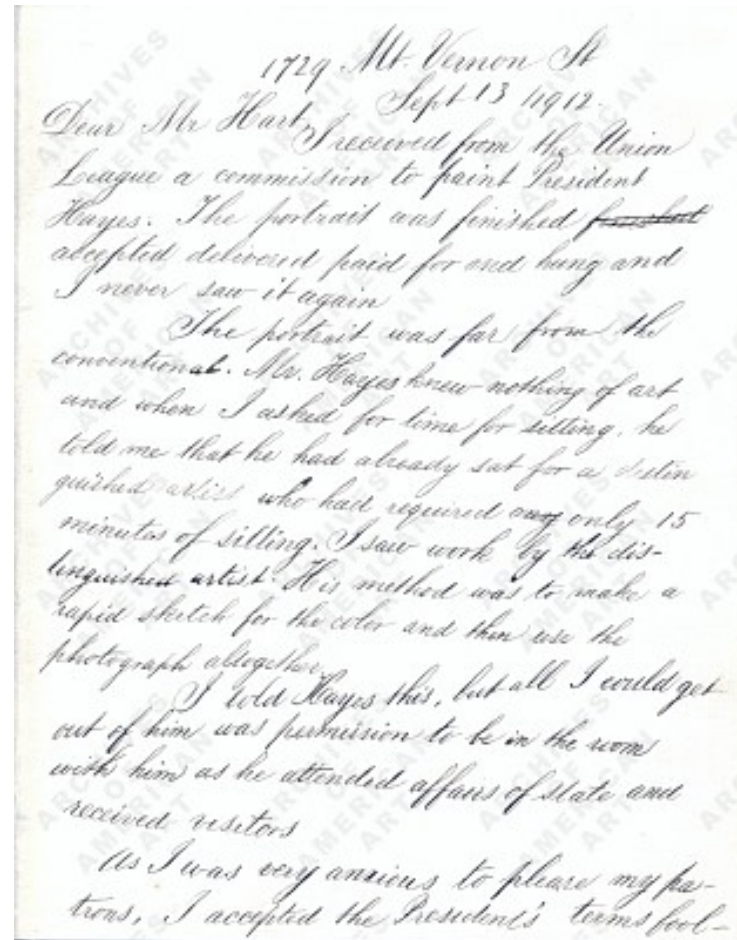 1729 Mt. Vernon St
Sept 13 1912.
Dear Mr Hart,
I received from the Union
League a commission to paint President
Hayes. The portrait was finished finished
accepted delivered paid for and hung and
I never saw it again
The portrait was far from the
conventional. Mr. Hayes knew nothing of art
and when I asked for time for sitting, he
told me that he had already sat for a distin
guished artist who had required only 15
minutes of sitting. I saw work by the dis-
tinguished artist. His method was to make a
rapid sketch for the color and then use the
photograph altogether.
I told Hayes this, but all I could get
out of him was permission to be in the room
with him as he attended affairs of state and
received visitors
As I was very anxious to please my pa-
trons, I accepted the President's terms fool-
ARCHIVES
OF
AMERICAN
ART